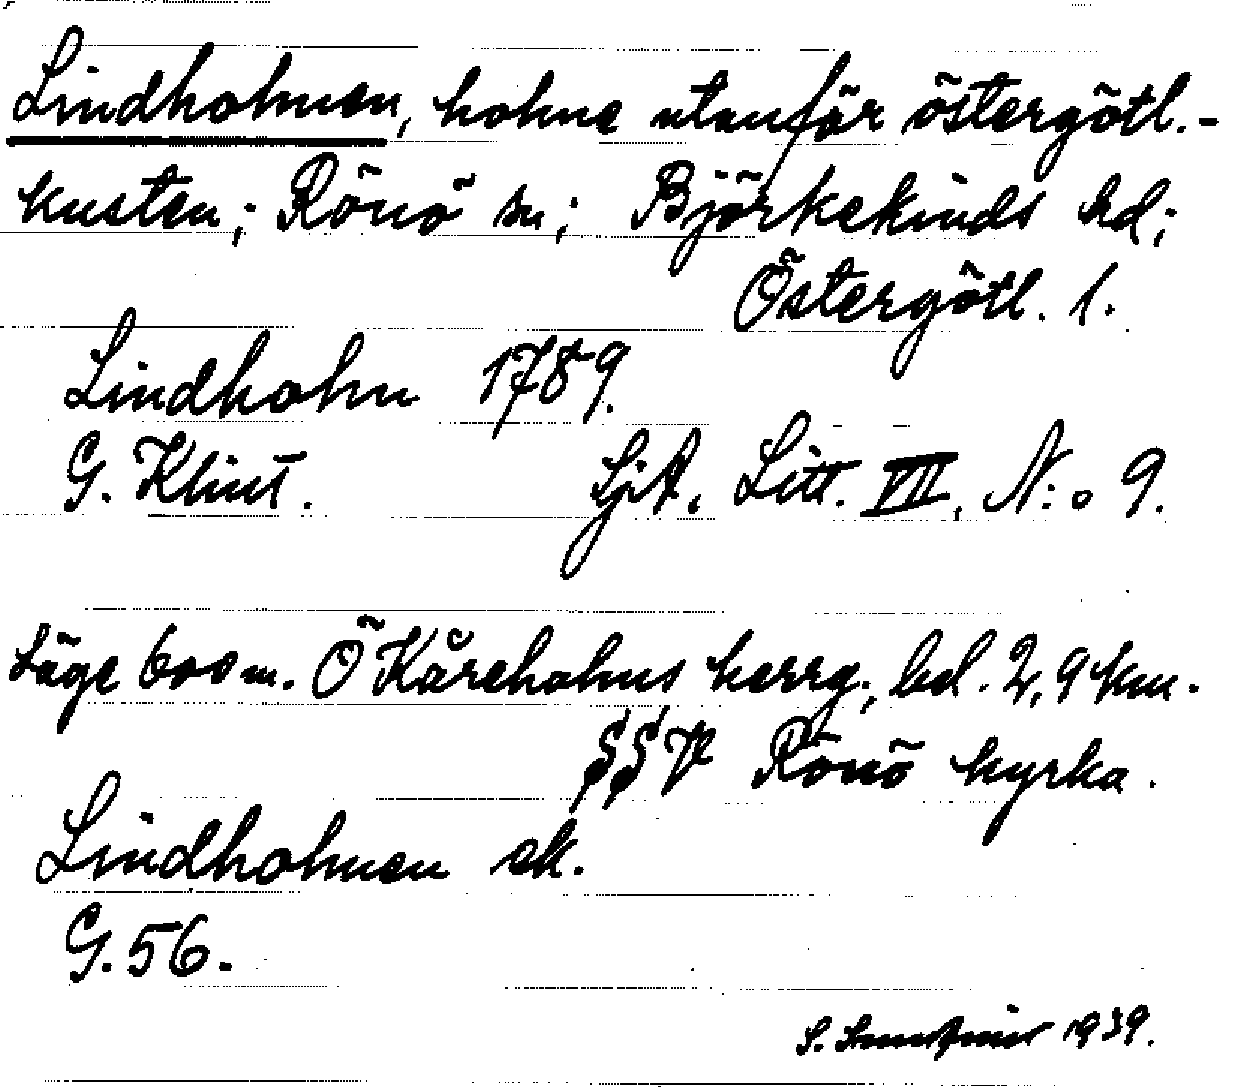 Lindholmen, holme utanför östergötl.-
kusten; Rönö sn; Björkekinds hd;
Östergötl. l.
Lindholm 1789.
G. Klint. SjA. Litt. VII, N:o 9.
Läge 600 m. Ö Kåreholms herrg., bel. 2,9 km.
SSV Rönö kyrka.
Lindholmen ek.
G. 56.
S. 1939.